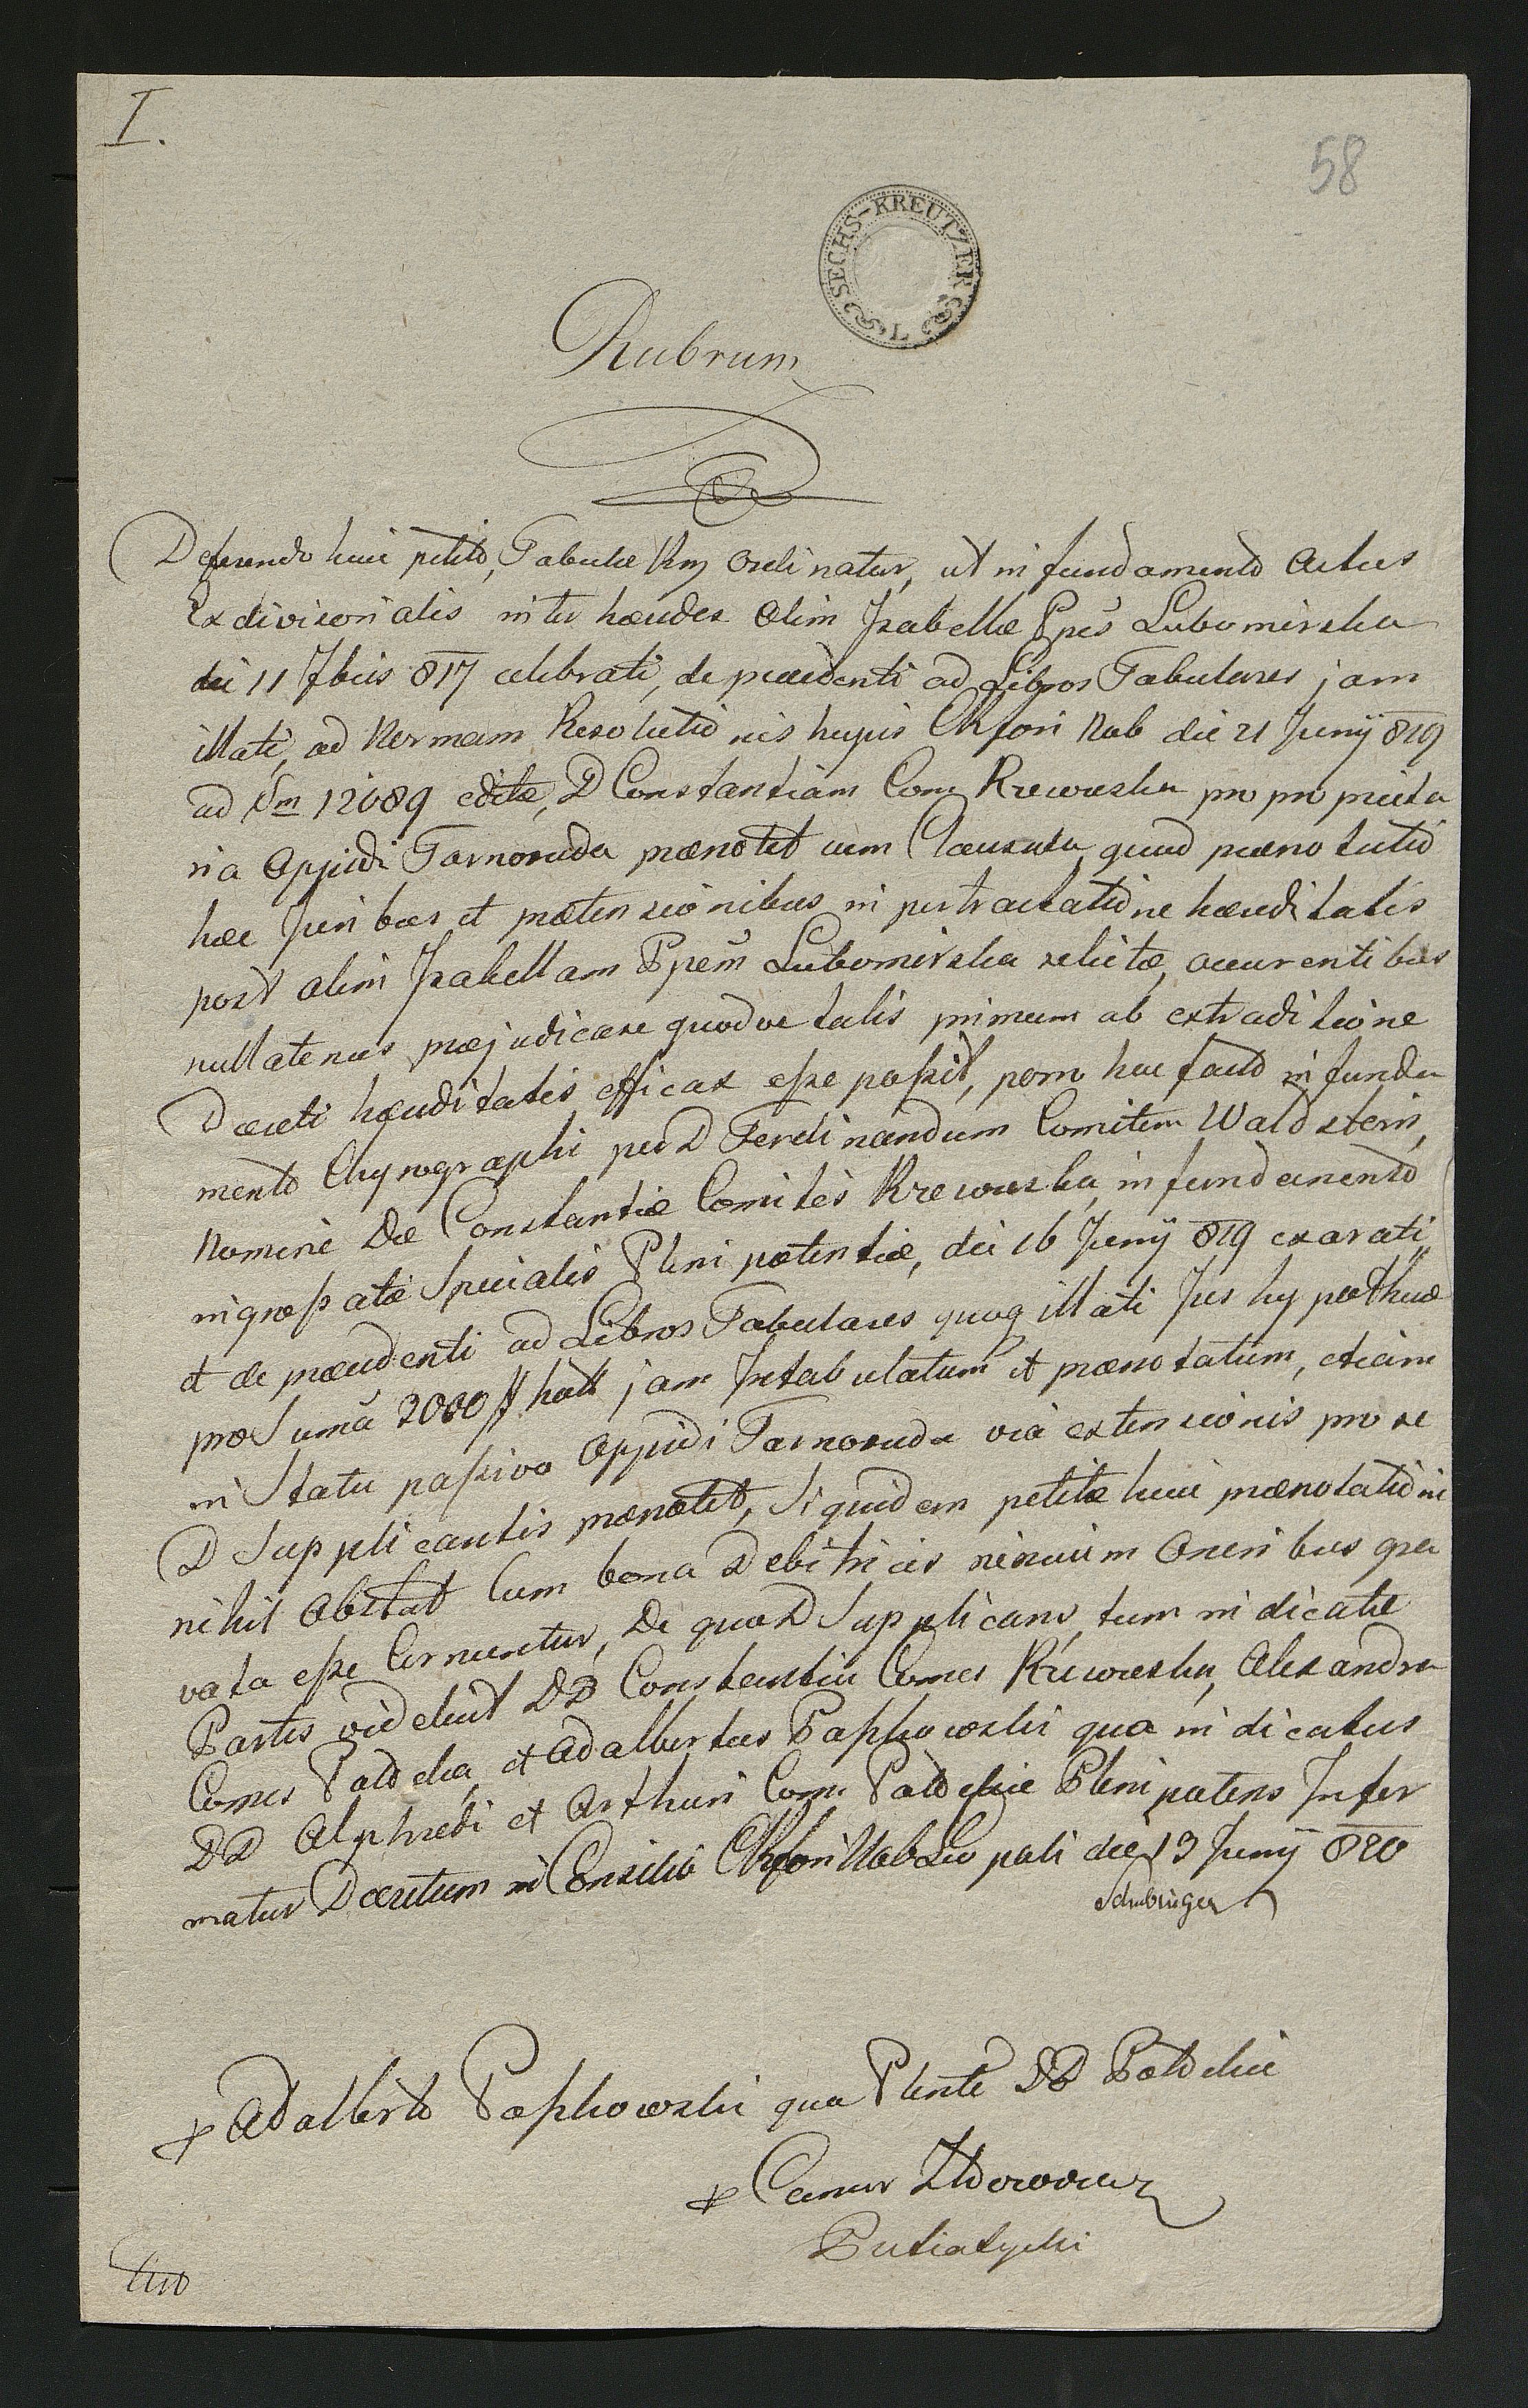 I.
58
SECHS-KREUTZER
L
Rubrum
Deferendo huic petito, Tabulae Rng ordinatur, ut in fundamento actus
Exdivisorialis inter haeredes olim Izabellae Ppis Lubomirska
die 11 7bris 817 celebrati, de praecedenti ad Libros Tabulares jam
illati, ad Normam Resolutionis hujus CRfori Nob die 21 Junÿ 819
ad Nm 12089 editae, D Constantiam Com Rzewuska pro proprieta
ria Oppidi Tarnoruda praenotet cum Clausula, quod praenotatio
haec Juribus et praetensionibus in pertractatione haereditatis
post olim Izabellam Ppem Lubomirska relictae, occurentibus
nullatenus praejudicare quodve talis primum ab extraditione
Decreti haereditatis efficax esse possit, porro hoc facto in funda
mento Chyrographi per D Ferdinandum Comitem Waldstein,
Nomine Dae Constantiae Comitis Rzewuska, in fundamento
ingrossatae Specialis Plenipotentiae, die 16 Junÿ 819 exarati
et de praecedenti ad Libros Tabulares quoq illati Jus hypothecae
pro Suma 2000 # holl jam Intabulatum et praenotatum, etiam
in Statu passivo Oppidi Tarnoruda via extensionis pro re
D Supplicantis praenotet, Siquidem petitae huic praenotationi
nihil obstat Cum bona Debitricis nexuum Oneribus gra
vata esse Cernuntur, De quo D Supplicans, tum indicatae
Partes videlicet DD Constantia Comes Rzewuska, Alexandra
Comes Potocka, et Adalbertus Paszkowski qua indicatus
DD Alphredi et Arthuri Com. Potockie Plenipotens Infor
matur Decretum in Consilio CRfori Nob Leopoli die 13 Junÿ 820
Adalberto Paszkowski qua Plente DD Potockie